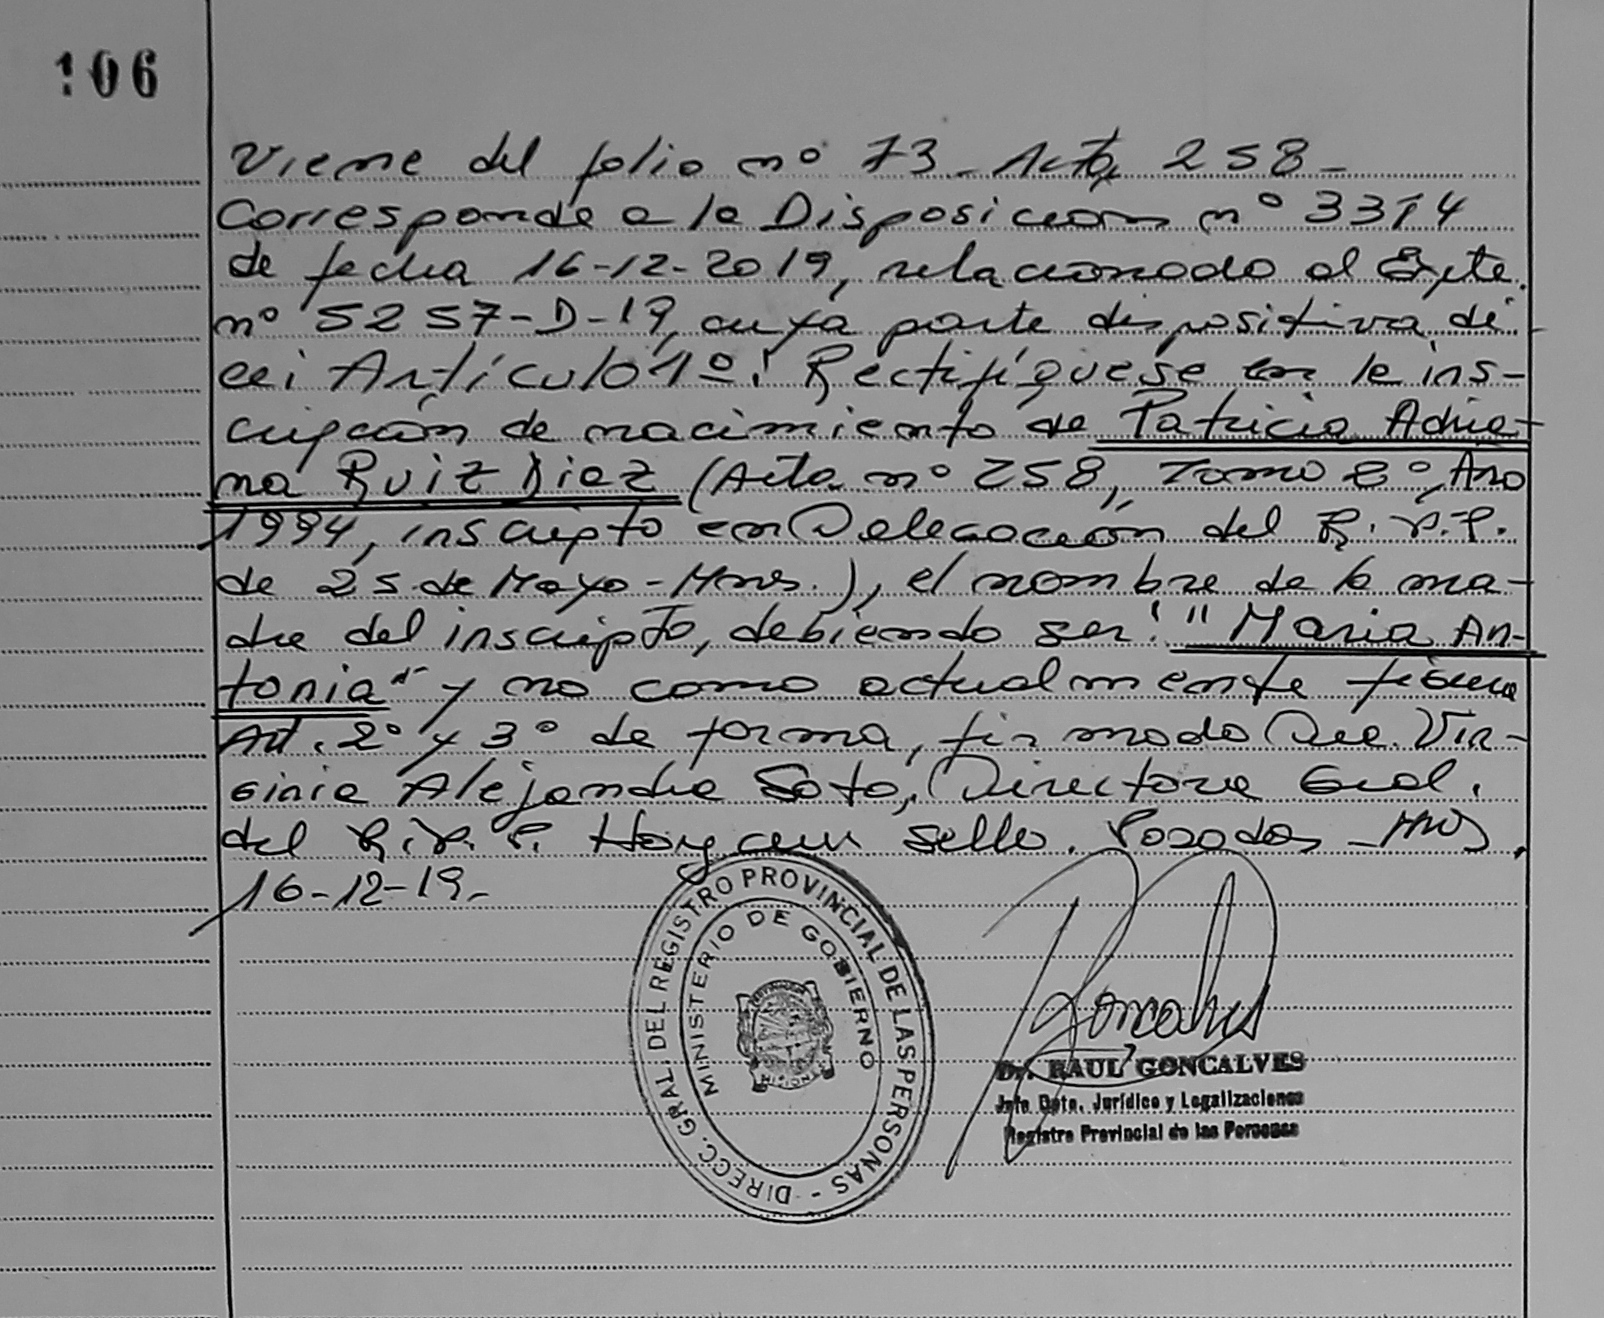 106
Viene del folio nº 73_ Acta 258_
Corresponde a la Disposicion nº 3314
de fecha 16-12-2019, relacionado al Expte.
nº 5257-D-19, cuya parte dispositiva di-
ce: Artículo 1º: Rectifíquese en la ins-
cripción de nacimiento de Patricia Adria-
na Ruiz Diaz (Acta nº 258, Tomo 2º, Año
1994, inscripto en Delegación del R.P.P.
de 25 de Mayo-Mnes.), el nombre de la ma-
dre del inscripto, debiendo ser: "Maria An-
tonia" y no como actualmente figura
Art. 2º y 3º de forma, firmado Dra. Vir-
ginia Alejandra Soto, Directora Gral.
del R.P.P. Hay un sello. Posadas -Mnes.
16-12-19.-
DIRECC. GRAL. DEL REGISTRO PROVINCIAL DE LAS PERSONAS -
MINISTERIO DE GOBIERNO
Goncalves
Dr. RAUL GONCALVES
Jefe Dpto. Jurídico y Legalizaciones
Registro Provincial de las Personas